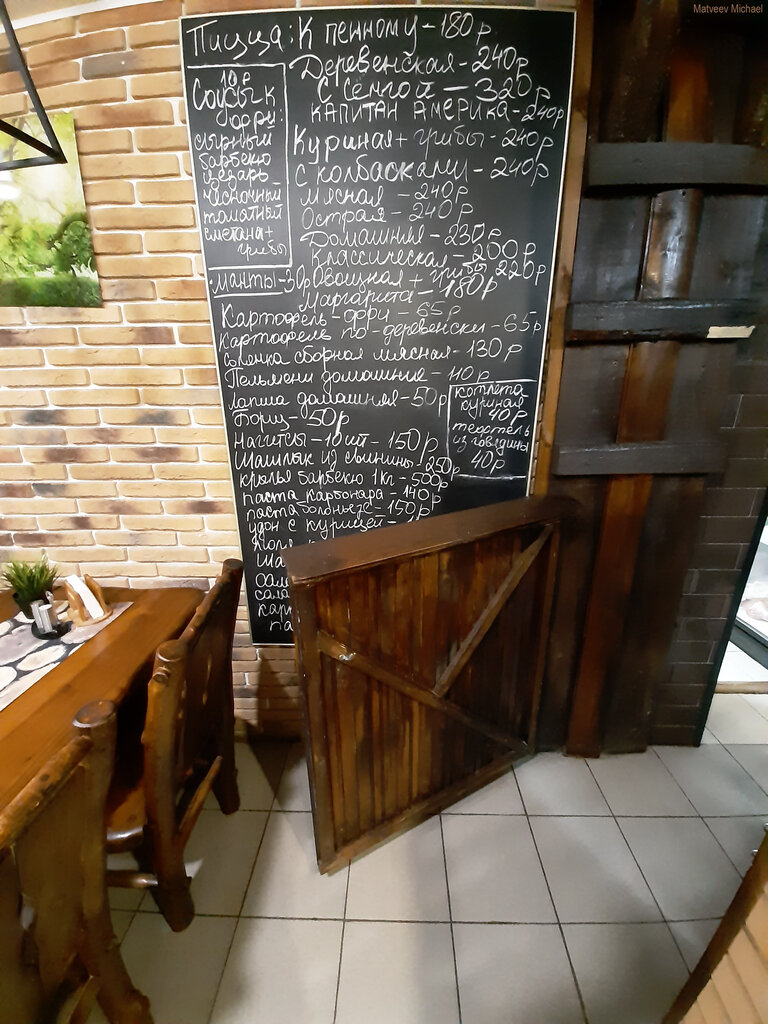 Matveev Michael
Пицца: К пенному - 180р
Деревенская - 240р
С сёмгой - 320р
Капитан Америка - 240р
Куриная + грибы - 240р
С колбасками - 240р
Мясная - 240р
Острая - 240р
Домашняя - 230р
Классическая - 200р
Овощная + грибы 220р
Маргарита - 180р
10р
Соусы к
фри:
сырный
барбекю
цезарь
чесночный
томатный
сметана +
грибы
манты - 30р
Картофель - фри - 65р
Картофель по-деревенски - 65р
солянка сборная мясная - 130р
Пельмени домашние - 110р
лапша домашняя - 50р
Борщ - 50р
Нагитсы - 10шт - 150р
Шашлык из свинины - 250р
крылья барбекю 1кг - 500р
паста карбонара - 140р
паста болоньезе - 150р
удон с курицей -
котлета
куриная
40р
тефтель
из говядины
40р